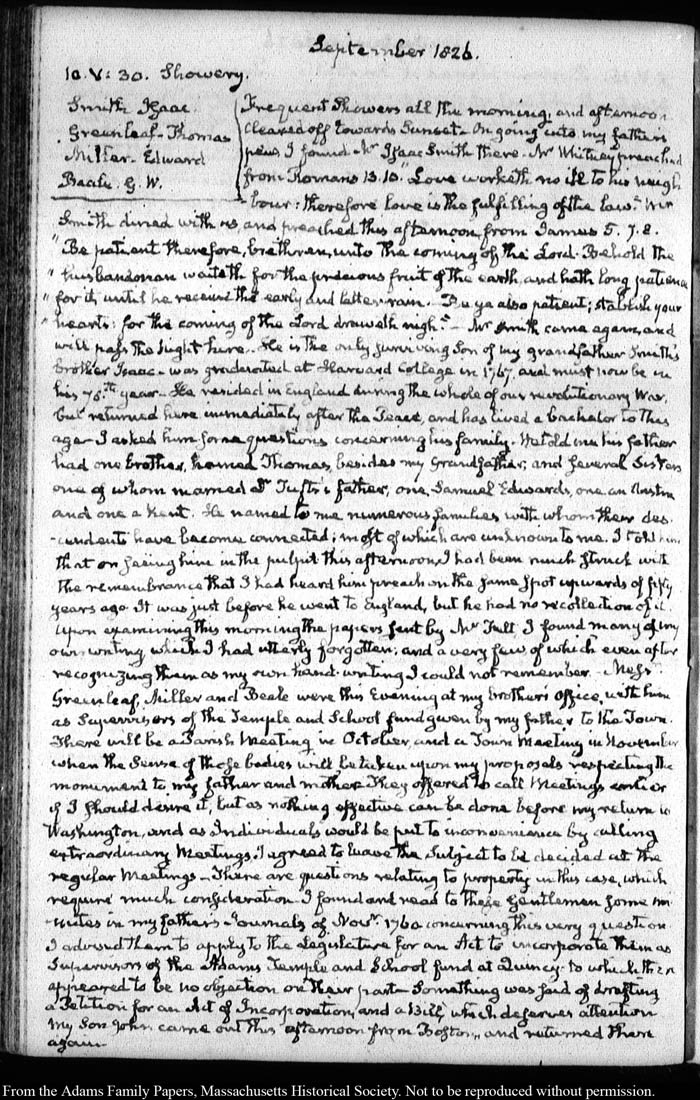 September 1826.
10. V: 30. Showery.
Smith Isaac.
Greenleaf. Thomas
Miller. Edward
Beale. G. W.
Frequent Showers all the morning, and afternoon
cleared off towards Sunset. On going into my father's
pew, I found Mr Isaac Smith there. Mr Whitney preached
from Romans 13. 10. "Love worketh no ill to his neigh
-bour: therefore love is the fulfilling of the law." Mr
Smith dined with us, and preached this afternoon from James 5. 7. 8.
"Be patient therefore, brethren, unto the coming of the Lord. Behold the
"husbandman waiteth for the precious fruit of the earth, and hath long patience
"for it, until he receive the early and latter rain. Be ye also patient; stablish your
"hearts: for the coming of the Lord draweth nigh." — Mr Smith came again, and
will pass the Night here. He is the only surviving Son of my grandfather Smith's
brother Isaac — was graduated at Harvard College in 1767. and must now be in
his 78th year — He resided in England during the whole of our revolutionary War,
but returned here immediately after the Peace, and has lived a bachelor to this
age — I asked him some questions concerning his family. He told me his father
had one brother, named Thomas, besides my Grandfather, and several Sisters
one of whom married Dr Tufts's father, one, Samuel Edwards, one an Austin
and one a Kent. He named to me numerous families with whom their des
-cendents have become connected; most of which are unknown to me. I told him
that on seeing him in the pulpit this afternoon, I had been much struck with
the remembrance that I had heard him preach on the same spot upwards of fifty
years ago. It was just before he went to England, but he had no recollection of it.
Upon examining this morning the papers sent by Mr Felt I found many of my
own writing which I had utterly forgotten; and a very few of which even after
recognizing them as my own hand-writing I could not remember. Messrs
Greenleaf, Miller and Beale were this Evening at my brother's office, with him
as Supervisors of the Temple and School fund given by my father to the Town.
There will be a Parish Meeting in October, and a Town Meeting in November
when the Sense of those bodies will be taken upon my proposals respecting the
monument to my father and mother. They offered to call Meetings earlier
if I should desire it, but as nothing effective can be done before my return to
Washington, and as Individuals would be put to inconvenience by calling
extraordinary Meetings, I agreed to leave the Subject to be decided at the
regular Meetings — There are questions relating to property in this case, which
require much consideration. I found and read to these Gentlemen some mi
-nutes in my father's Journals of Novr 1760 concerning this very question.
I advised them to apply to the Legislature for an Act to incorporate them as
Supervisors of the Adams Temple and School fund at Quincy. to which there
appeared to be no objection on their part — Something was said of drafting
a Petition for an Act of Incorporation, and a Bill, which deserves attention.
My Son John came out this afternoon from Boston, and returned there
again —
From the Adams Family Papers, Massachusetts Historical Society. Not to be reproduced without permission.